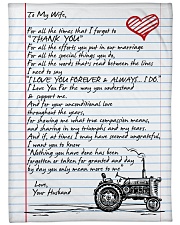 To My Wife,
For all the times that I forgot to
"THANK YOU"
For all the efforts you put in our marriage
For all the special things you do,
For all the words that's read between the lines
I need to say
"I LOVE YOU FOREVER & ALWAYS... I DO."
I Love You For the way you understand
& support me.
And for your unconditional love
throughout the years,
For showing me what true compassion means,
and sharing in my triumphs and my tears.
And if, at times I may have seemed ungrateful,
I want you to know
"Nothing you have done has been
forgotten or taken for granted and day
by day you only mean more to me
Love,
Your Husband